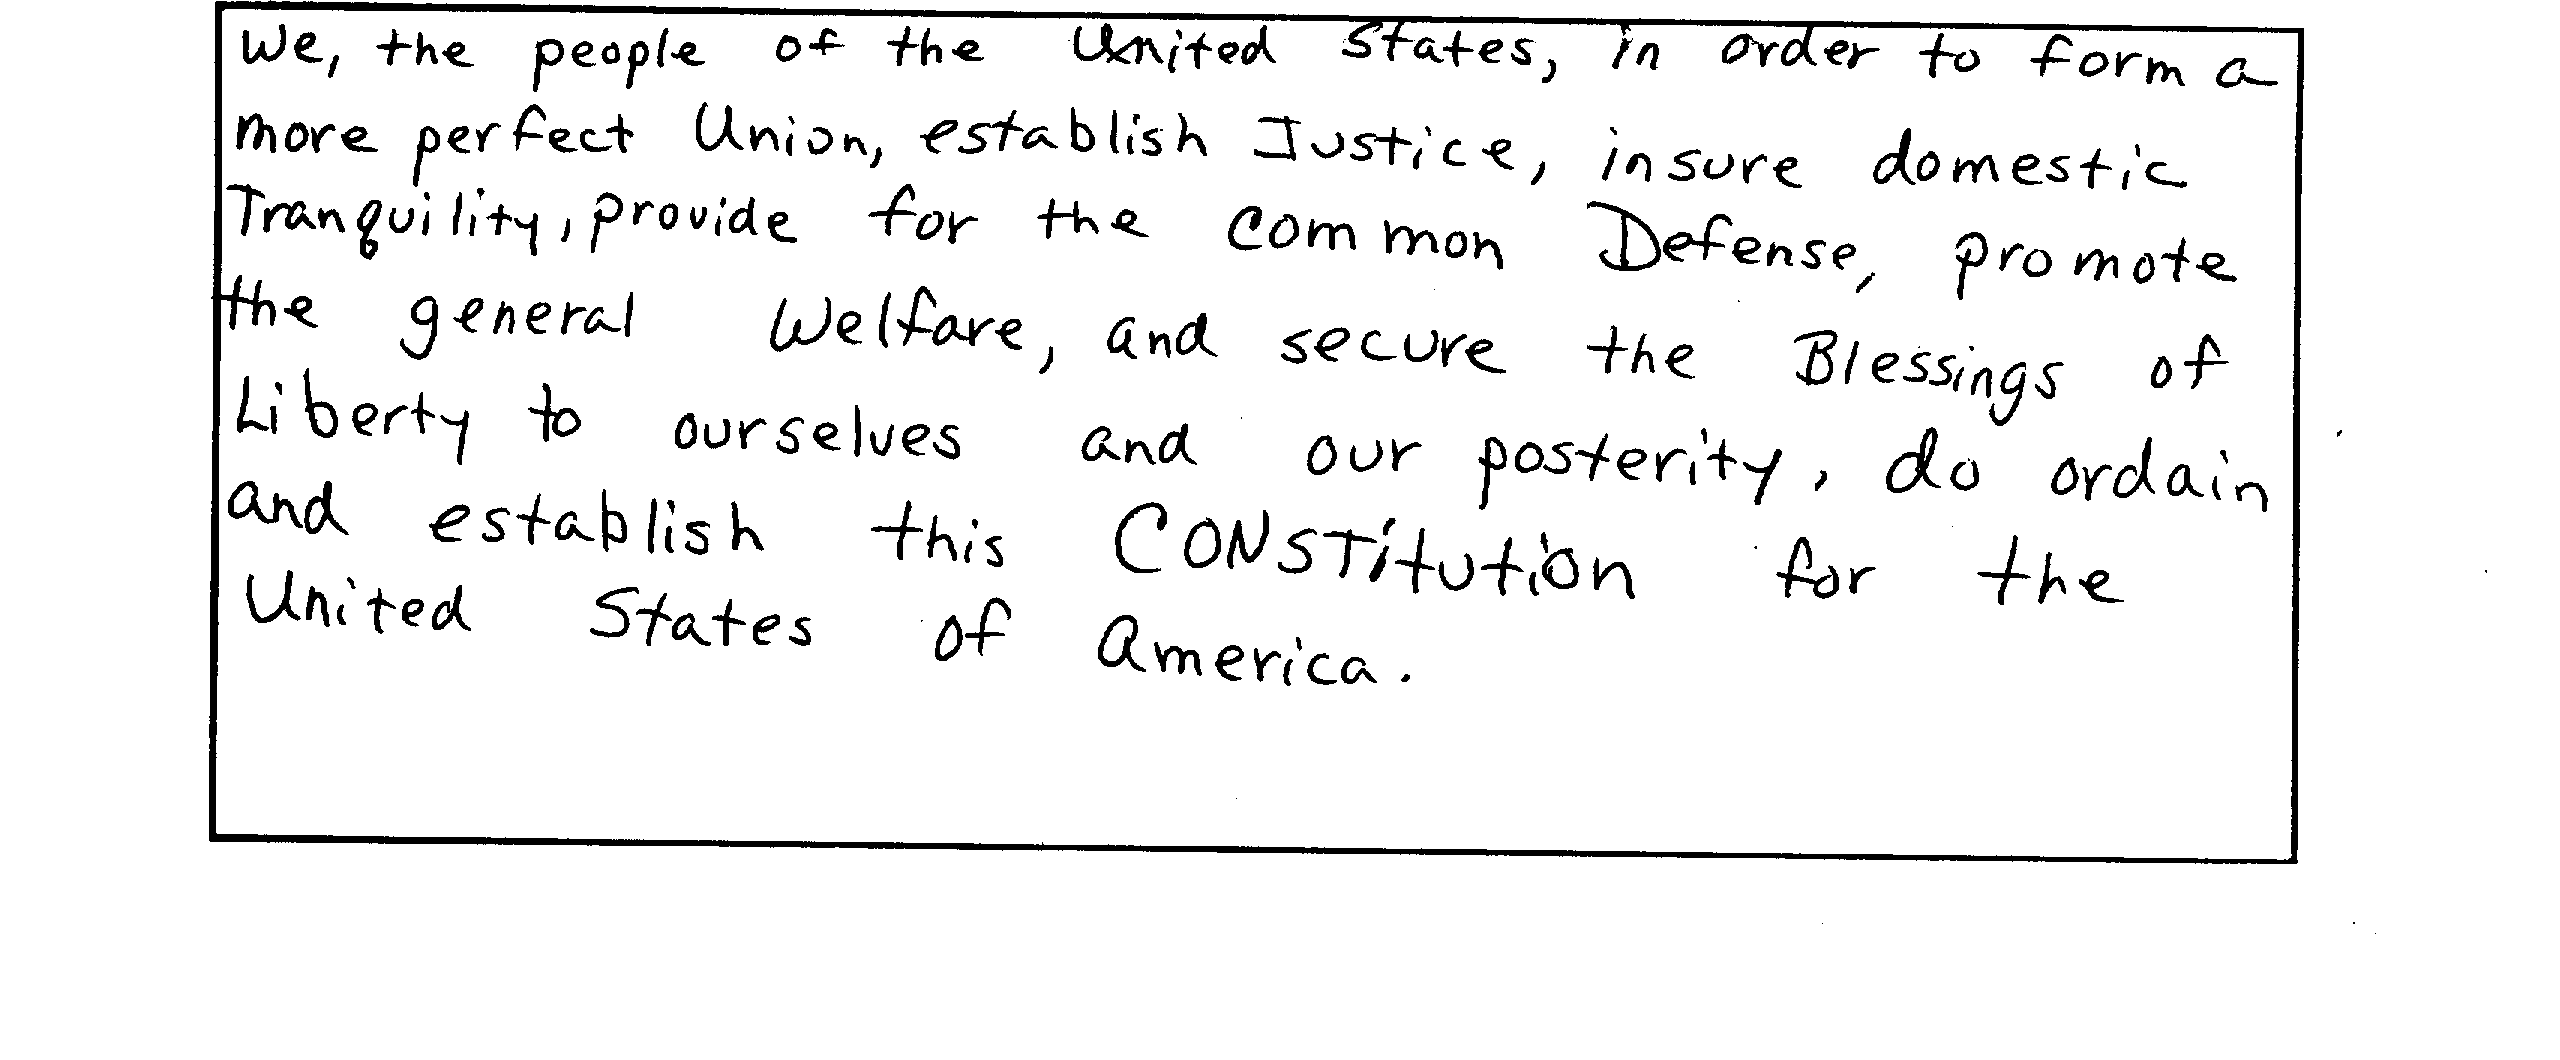 We, the people of the United States, in order to form a
more perfect Union, establish Justice, insure domestic
Tranquility, provide for the common Defense, promote
the general Welfare, and secure the Blessings of
Liberty to ourselves and our posterity, do ordain
and establish this CONSTitution for the
United States of America.